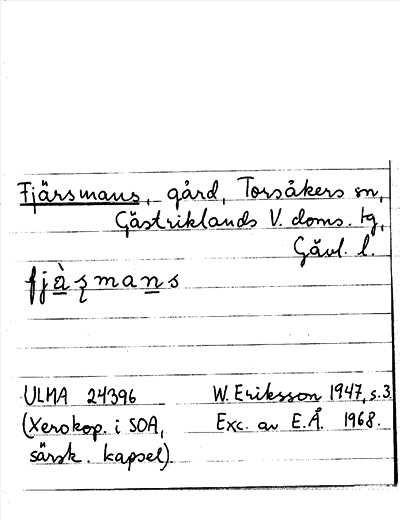 Fjärsmans, gård, Torsåkers sn,
Gästriklands V. doms. tg,
Gävl. l.
fjà̱ʂmans
ULMA 24396 W. Eriksson 1947, s. 3
(Xerokop. i SOA, Exc. av E.Å. 1968.
särsk. kapsel).